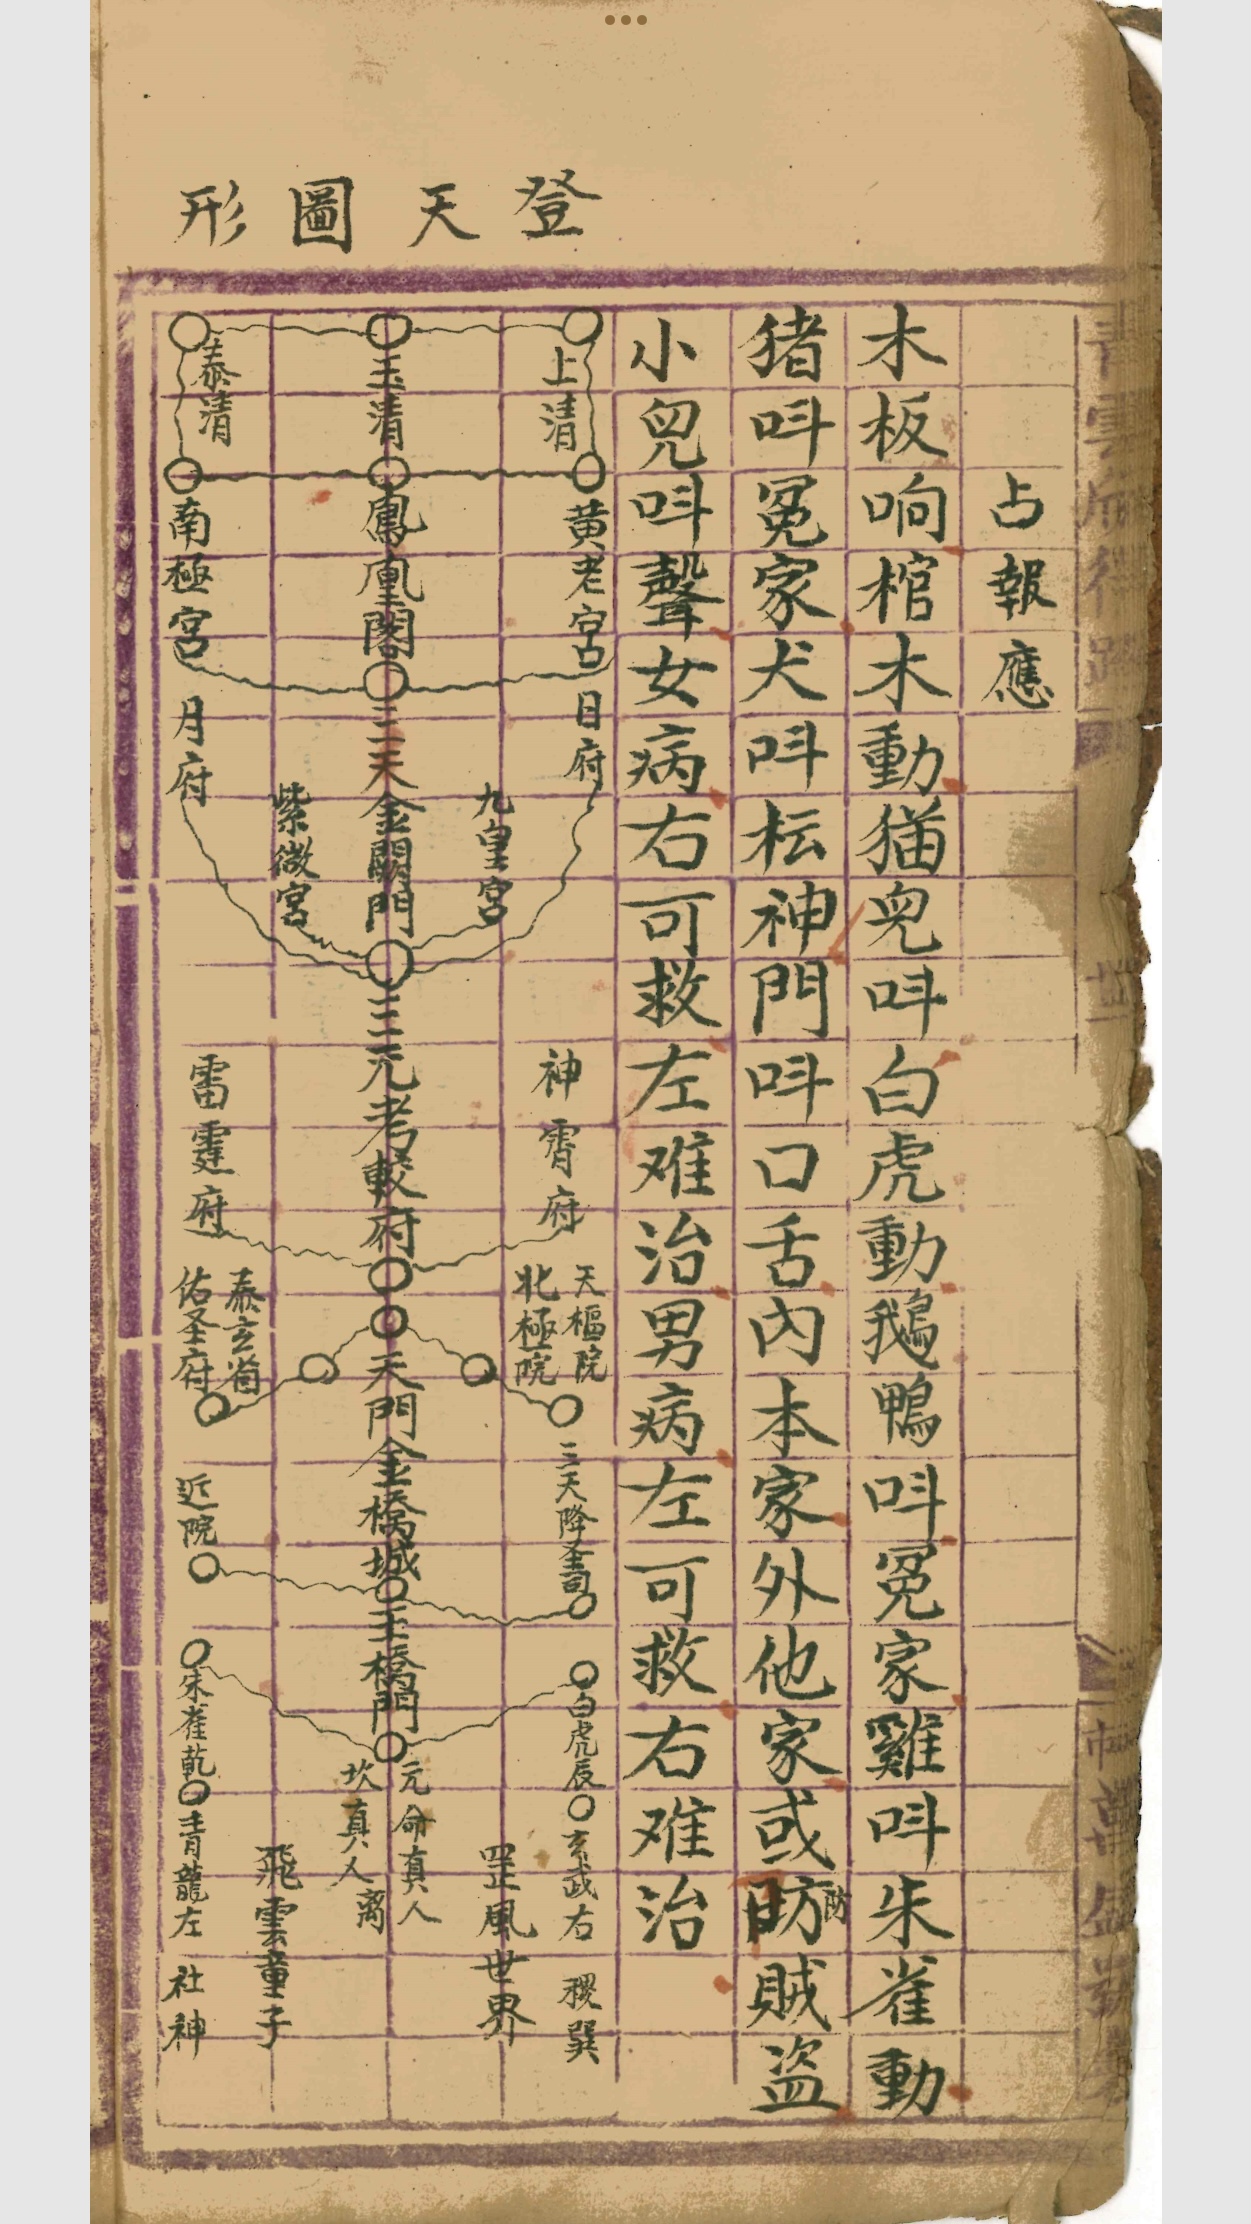 登天圖形
占報應
木板响棺木動猫兒呌白虎動鵝鴨呌冤家雞呌朱雀動
猪呌冤家犬呌枟神門呌口舌內本家外他家或防賊盜
防
小兒呌聲女病右可救左难治男病左可救右难治
上清
玉清
泰清
黄老宮
鳳凰閣
南極宮
日府
三天金闕門
月府
九皇宮
紫微宮
三元考較府
神霄府
雷霆府
天樞院
北極院
泰玄省
佑圣府
天門金橋城
三天降圣司
近院
玉橋門
白虎辰
朱雀乾
玄武右
青龍左
元命真人
坎真人
离
罡風世界
飛雲童子
稷巽
社神